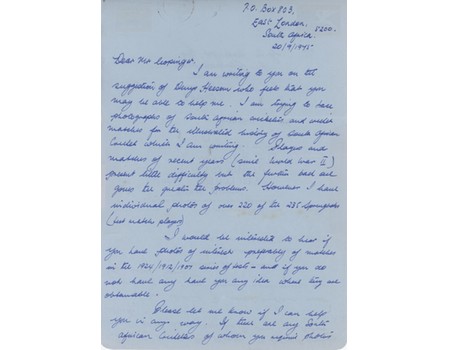 P.O. Box 803,
East London.
5200.
South Africa.
20/9/1975
Dear Mr
I am writing to you on the
suggestion of who feels that you
may be able to help me. I am trying to
photographs of South African cricketers and
matches for the illustrated history of South African
Cricket which I am writing. Players and
matches of recent years (since World War II)
present little difficulty but the further back one
goes the greater the problems. However I have
individual photos of over 220 of the 235 Springboks
(test match players)
I would be interested to hear if
you have photos of interest preferably of matches
in the 1924/1912/1907 series of tests - and if you do
not have any have you any idea where they are
obtainable.
Please let me know if I can help
you in any way. If there are any South
African cricketers of whom you require photos